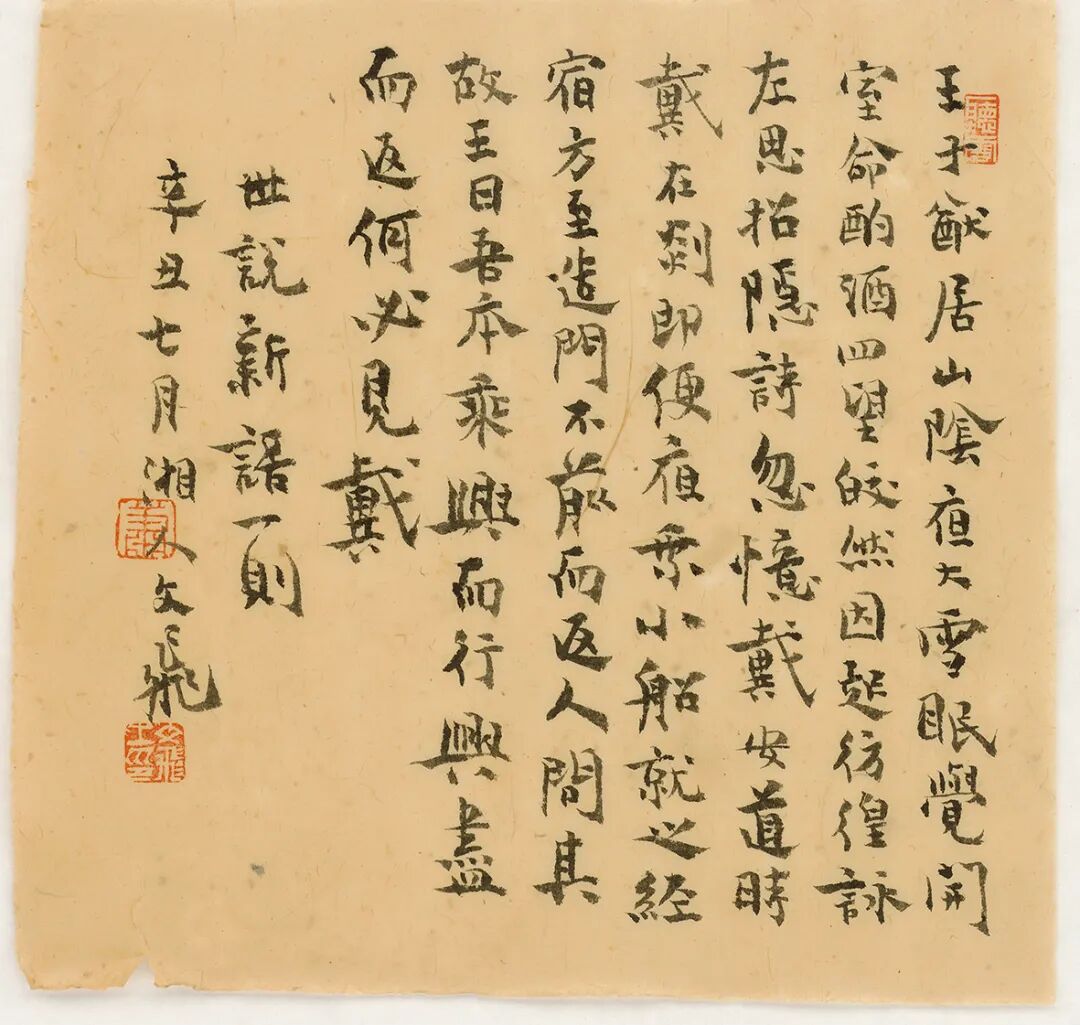 王子猷居山陰夜大雪眠覺開
室命酌酒四望皎然因起彷徨詠
左思招隱詩忽憶戴安道時
戴在剡即便夜乘小船就之經
宿方至造門不前而返人間其
故王曰吾本乘興而行興盡
而返何必見戴
世說新語一則
辛丑七月湘人文飛